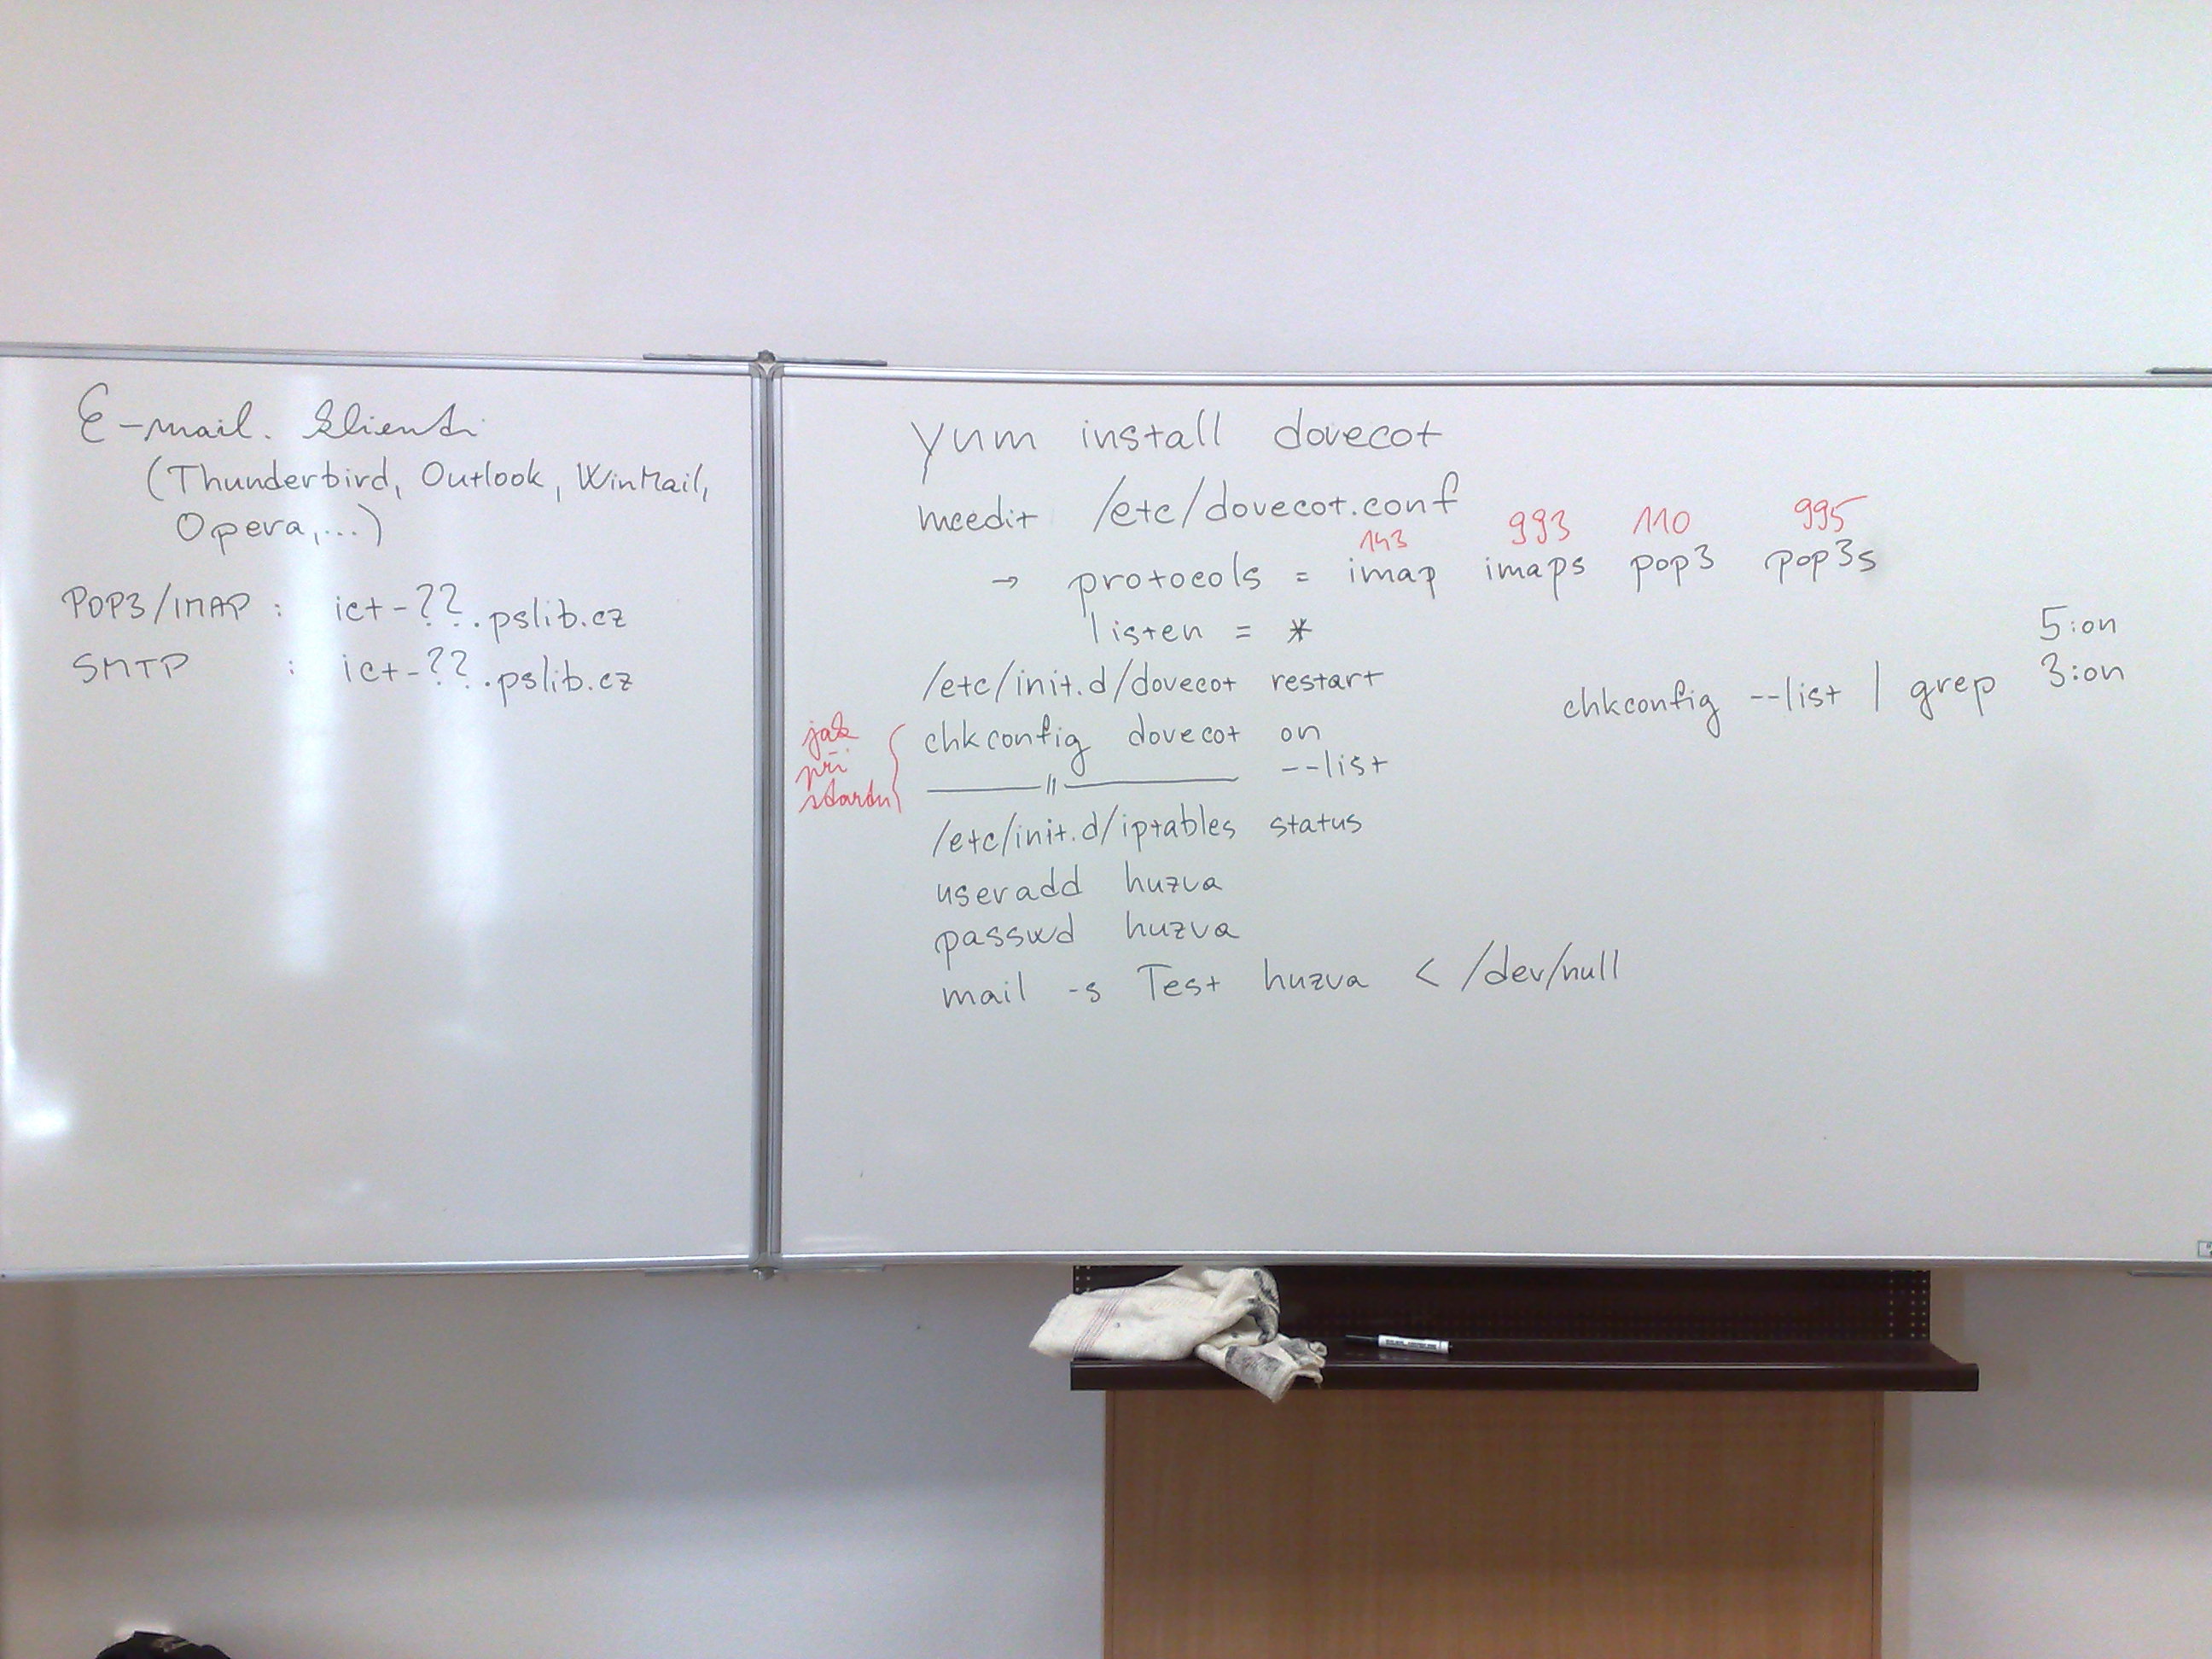 E-mail. klienti
(Thunderbird, Outlook, WinMail,
Opera,...)
POP3/IMAP : ict-??.pslib.cz
SMTP : ict-??.pslib.cz
yum install dovecot
mcedit /etc/dovecot.conf
143 993 110 995
→ protocols = imap imaps pop3 pop3s
listen = *
/etc/init.d/dovecot restart
jak
při
startu
chkconfig dovecot on
—— 〃 —— --list
/etc/init.d/iptables status
useradd huzva
passwd huzva
mail -s Test huzva < /dev/null
5:on
chkconfig --list | grep 3:on